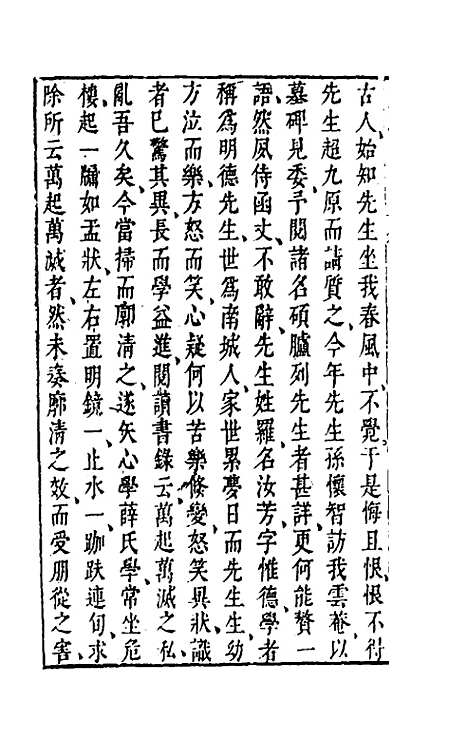 古人始知先生坐我春風中不覺于是悔且恨恨不得
先生超九原而請質之今年先生孫懷智訪我雲菴以
墓碑見委予閱諸名碩臚列先生者甚詳更何能贅一
語然夙侍函丈不敢辭先生姓羅名汝芳字惟德學者
稱為明德先生世為南城人家世累夢日而先生生幼
方泣而樂方怒而笑心疑何以苦樂條變怒笑異狀識
者已驚其異長而學益進閱讀書錄云萬起萬滅之私
亂吾久矣今當掃而廓清之遂矢心學薛氏學常坐危
樓起一牖如盂狀左右置明鏡一止水一跏趺連旬求
除所云萬起萬滅者然未奏廓清之效而受朋從之害